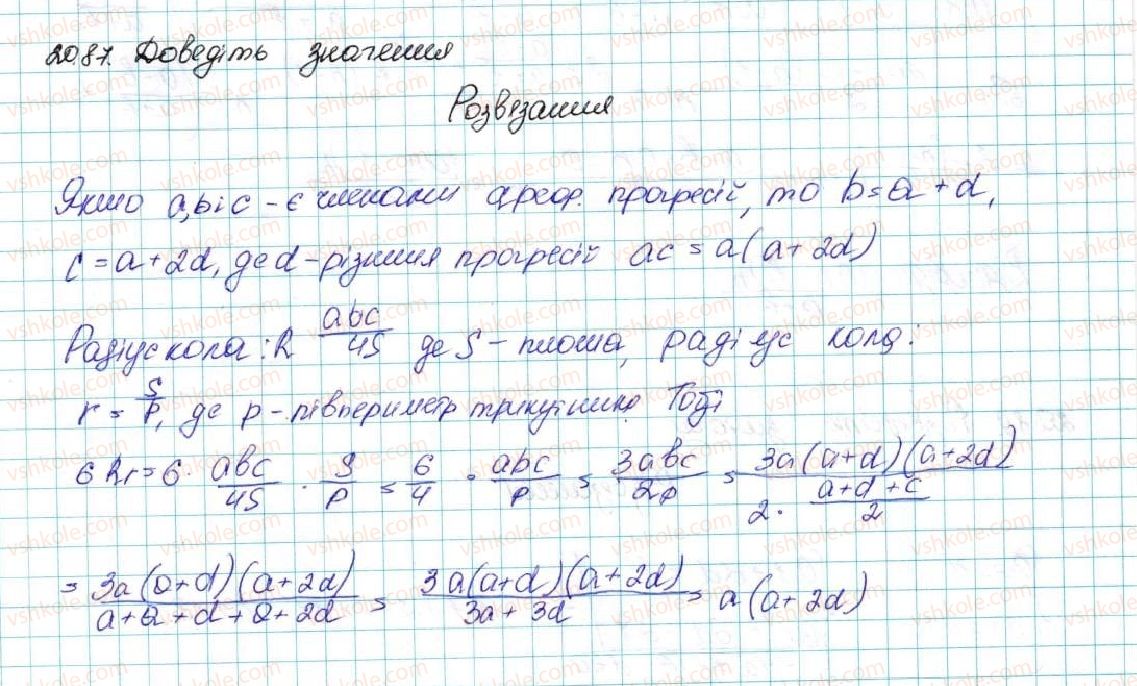 20.87. Доведіть значення
Розвязання
Якшо a, b і c - є членами ареф. прогресії, то b = a + d,
c = a + 2d, де d - різниця прогресій ac = a(a + 2d)
Радіус кола: R abc/4S де S - площа, радіус кола:
r = S/p, де p - півпериметр трикутника. Тоді
6Rr = 6 · abc/4S · S/p = 6/4 · abc/p = 3abc/2p = 3a(a+d)(a+2d)/(2 · (a+d+c)/2)
= 3a(a+d)(a+2d)/(a+a+d+a+2d) = 3a(a+d)(a+2d)/(3a+3d) = a(a+2d)